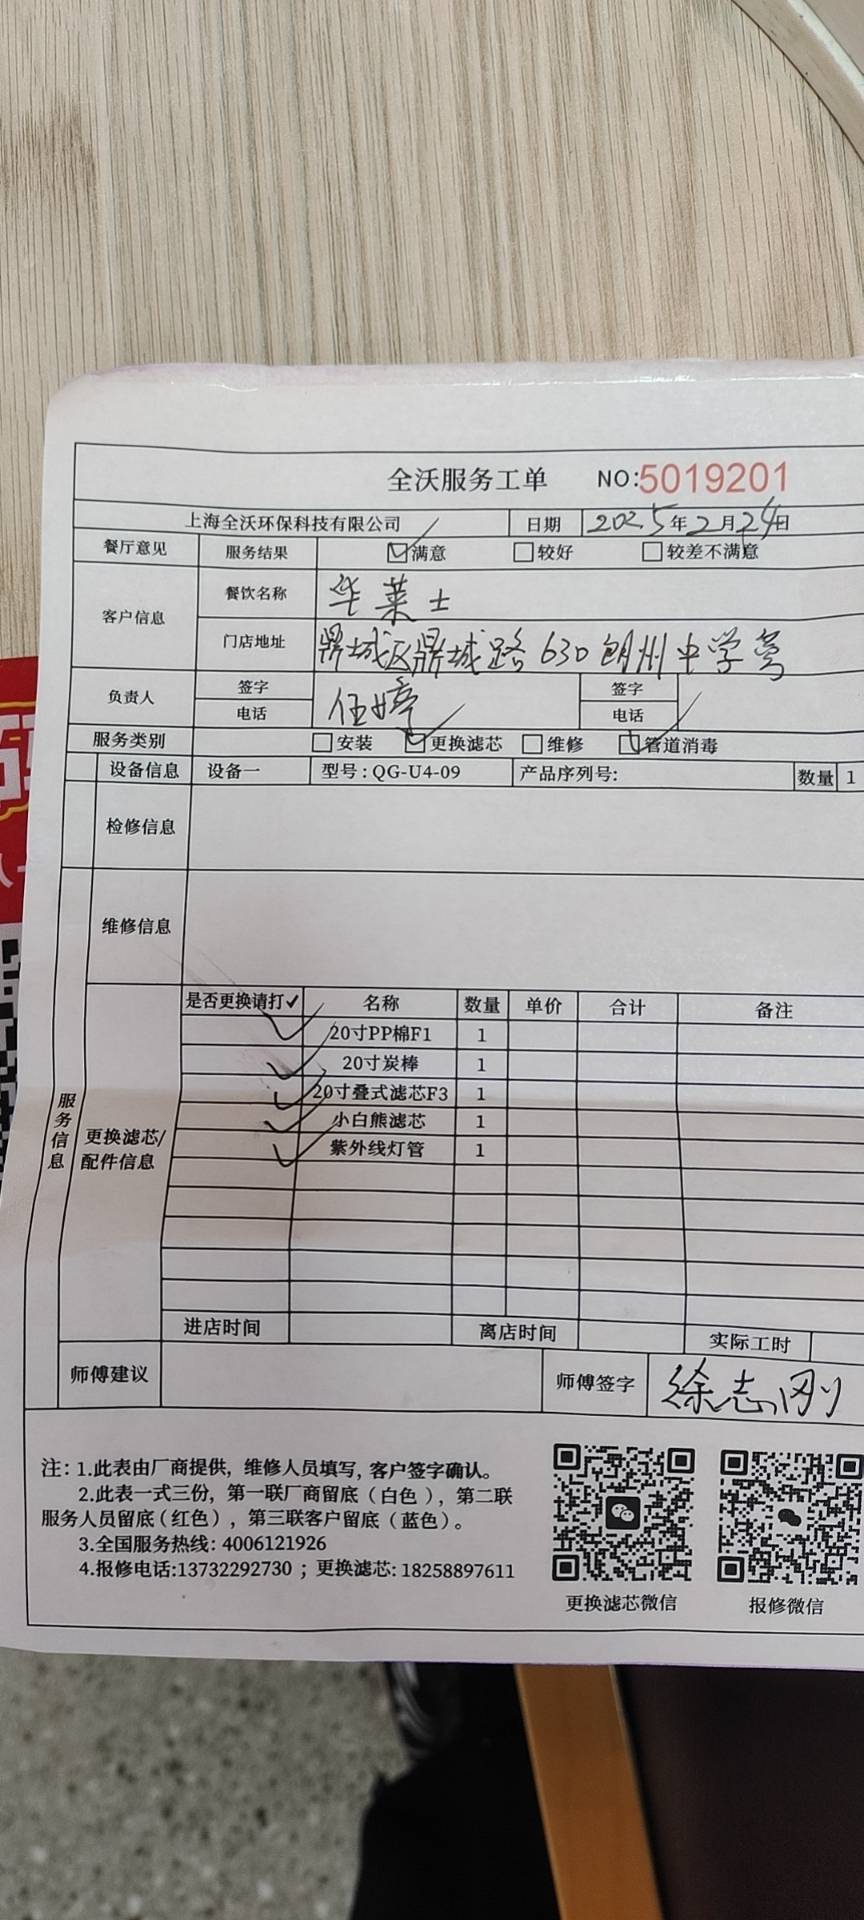 全沃服务工单 NO:5019201
上海全沃环保科技有限公司 日期 2025年2月24日
餐厅意见 服务结果 ☑满意 □较好 □较差不满意
客户信息 餐饮名称 华莱士
门店地址 鼎城区鼎城路630朗州中学旁
负责人 签字 任婷 签字
电话 电话
服务类别 □安装 ☑更换滤芯 □维修 ☑管道消毒
设备信息 设备一 型号:QG-U4-09 产品序列号: 数量 1
检修信息
维修信息
服务信息
更换滤芯/配件信息
是否更换请打✓ 名称 数量 单价 合计 备注
✓ 20寸PP棉F1 1
✓ 20寸炭棒 1
✓ 20寸叠式滤芯F3 1
✓ 小白熊滤芯 1
✓ 紫外线灯管 1
进店时间 离店时间 实际工时
师傅建议 师傅签字 徐志刚
注:1.此表由厂商提供,维修人员填写,客户签字确认。
2.此表一式三份,第一联厂商留底(白色),第二联
服务人员留底(红色),第三联客户留底(蓝色)。
3.全国服务热线:4006121926
4.报修电话:13732292730;更换滤芯:18258897611
更换滤芯微信 报修微信